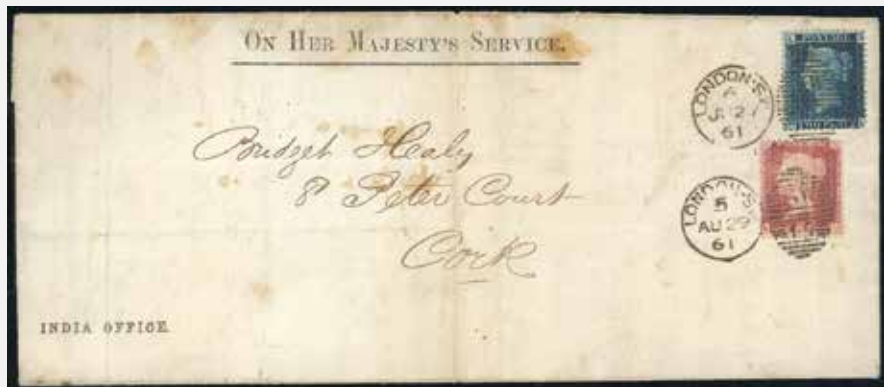 ON HER MAJESTY'S SERVICE.
POSTAGE
LONDON·S.
JY 27
61
Bridget Healy
8 Peter Court
Cork
LONDON·S.
5
AU 29
61
INDIA OFFICE.